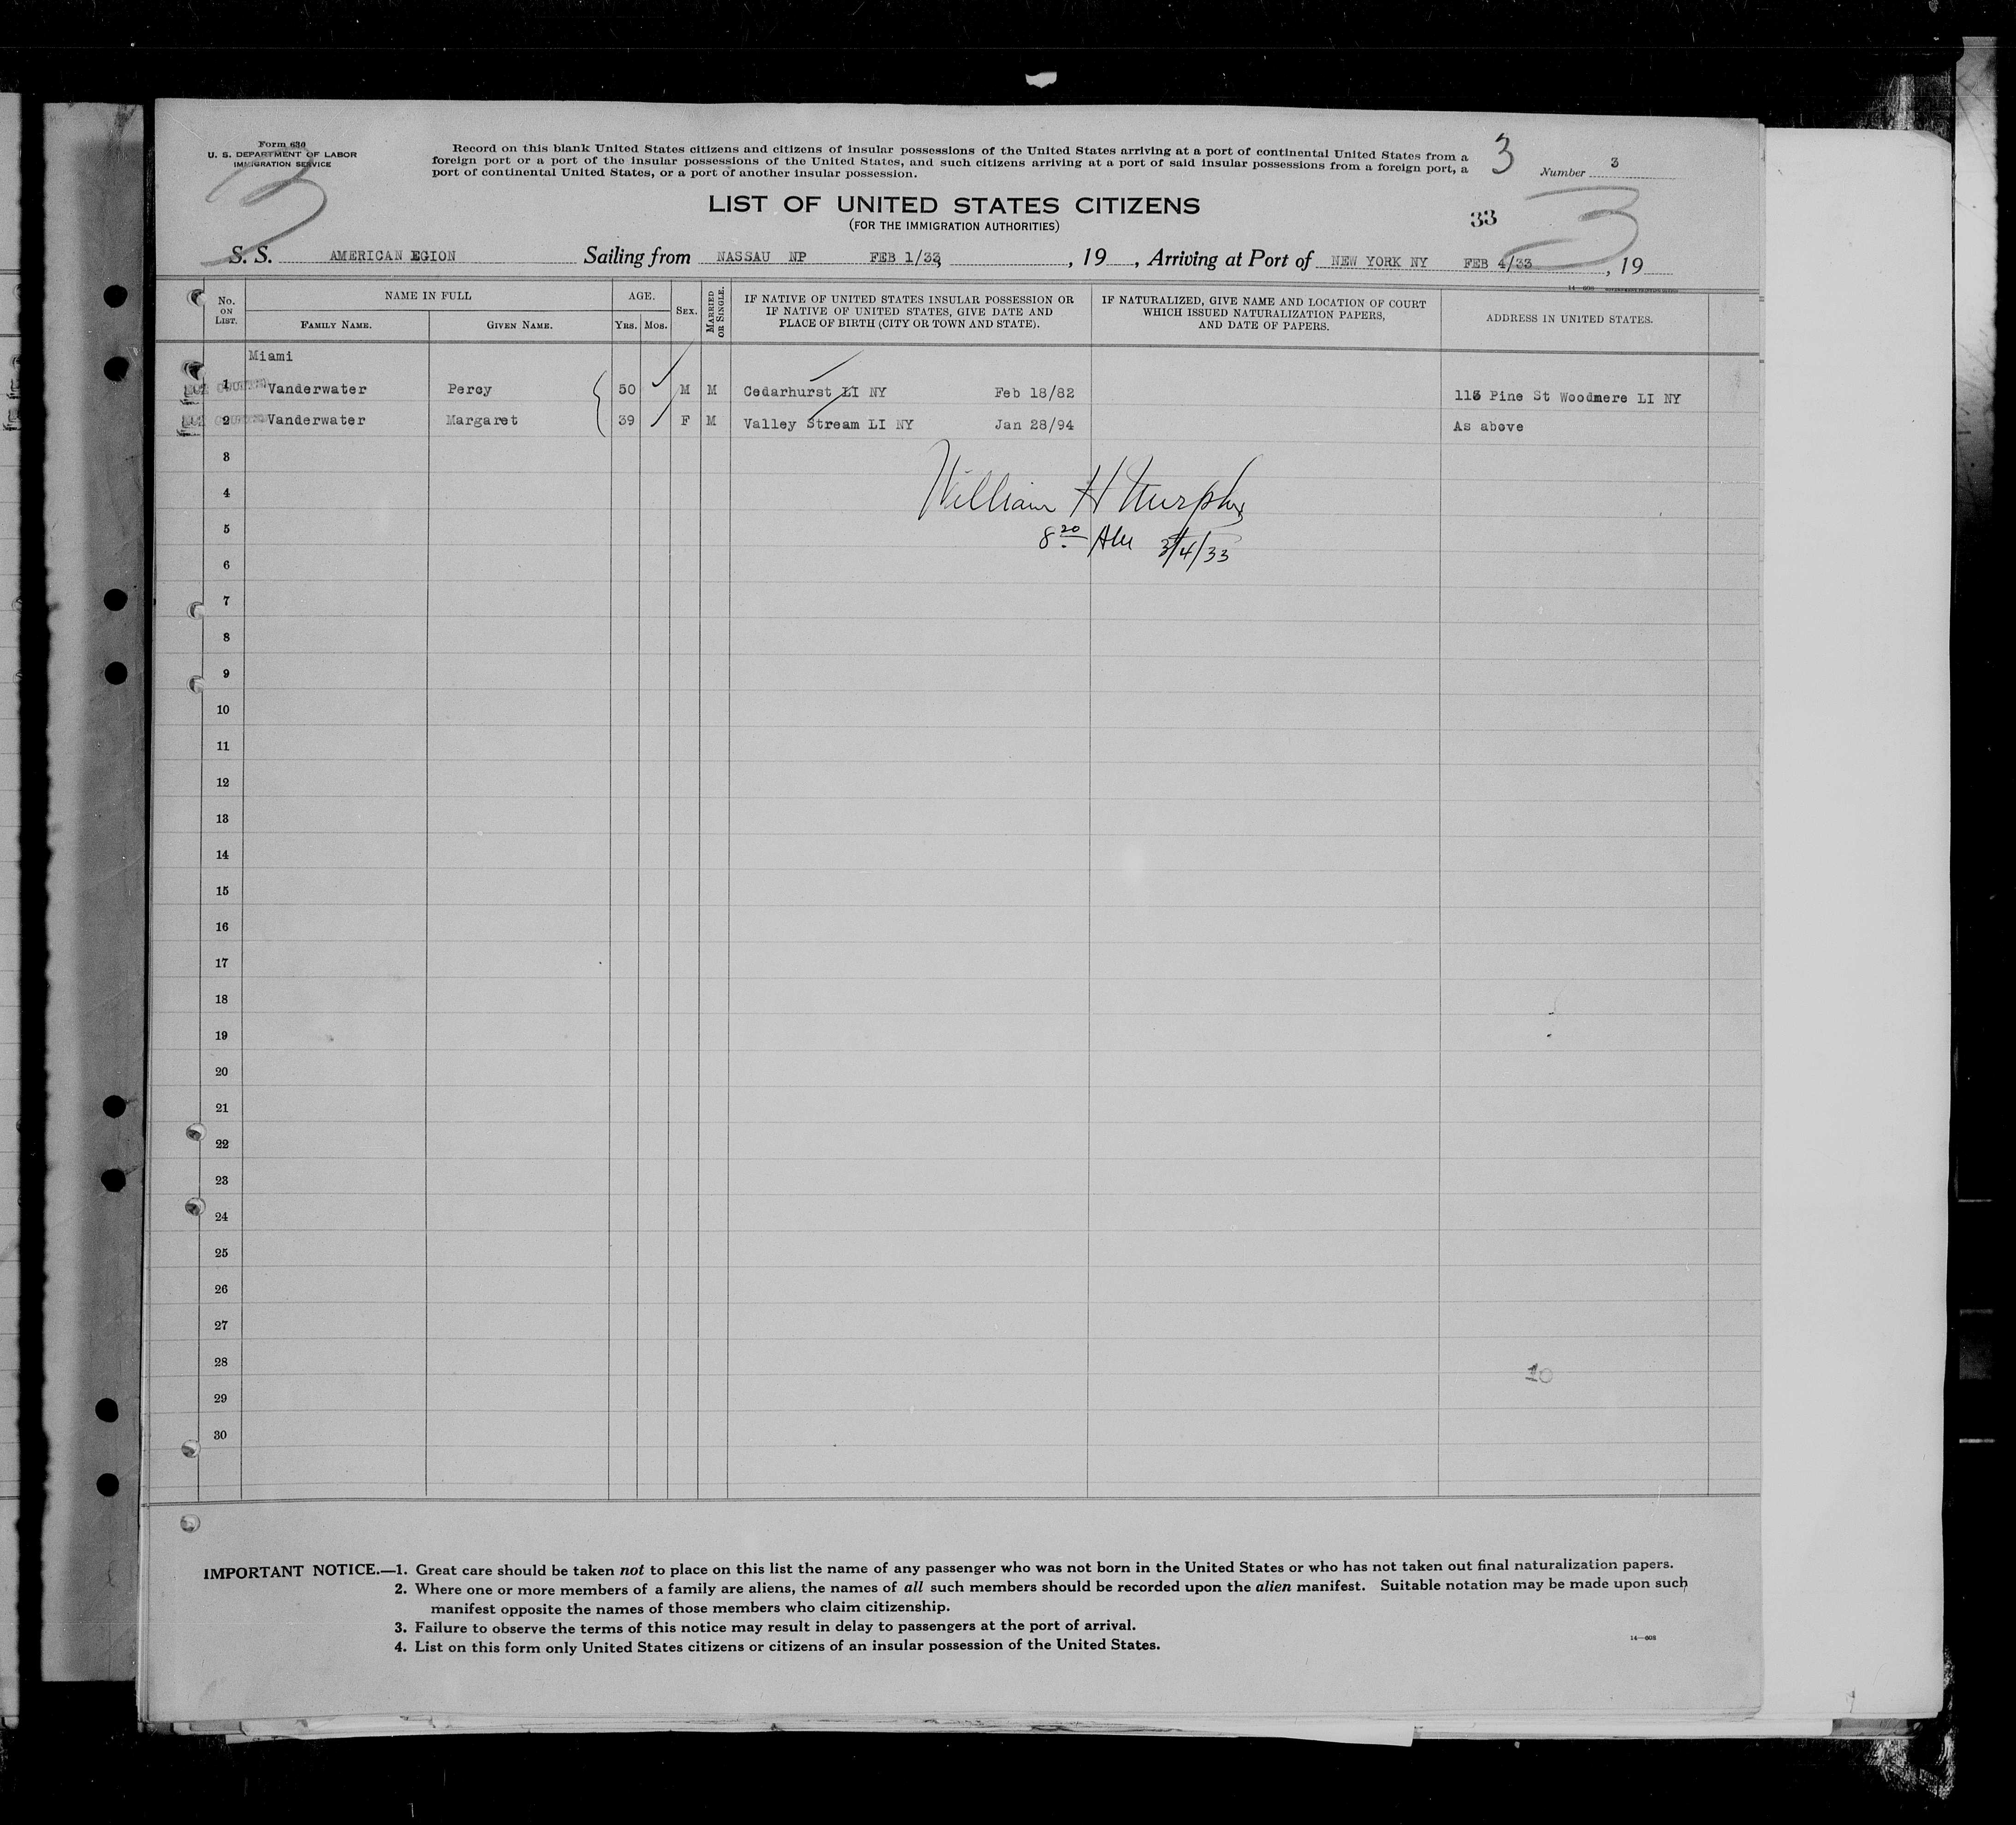 Form 630
U. S. DEPARTMENT OF LABOR
IMMIGRATION SERVICE
3
Record on this blank United States citizens and citizens of insular possessions of the United States arriving at a port of continental United States from a
foreign port or a port of the insular possessions of the United States, and such citizens arriving at a port of said insular possessions from a foreign port, a
port of continental United States, or a port of another insular possession.
3
Number 3
LIST OF UNITED STATES CITIZENS
(FOR THE IMMIGRATION AUTHORITIES)
33
3
S. S. AMERICAN EGION Sailing from NASSAU NP FEB 1/33, , 19 , Arriving at Port of NEW YORK NY FEB 4/33 , 19
14—608
No. ON LIST. NAME IN FULL FAMILY NAME. GIVEN NAME. AGE. YRS. MOS. SEX. MARRIED OR SINGLE. IF NATIVE OF UNITED STATES INSULAR POSSESSION OR IF NATIVE OF UNITED STATES, GIVE DATE AND PLACE OF BIRTH (CITY OR TOWN AND STATE). IF NATURALIZED, GIVE NAME AND LOCATION OF COURT WHICH ISSUED NATURALIZATION PAPERS, AND DATE OF PAPERS. ADDRESS IN UNITED STATES.
Miami
1 Vanderwater Percy 50 M M Cedarhurst LI NY Feb 18/82 113 Pine St Woodmere LI NY
2 Vanderwater Margaret 39 F M Valley Stream LI NY Jan 28/94 As above
3
4 William H Murphy
5 8 20 AM 3/4/33
6
7
8
9
10
11
12
13
14
15
16
17
18
19
20
21
22
23
24
25
26
27
28 10
29
30
IMPORTANT NOTICE.—1. Great care should be taken not to place on this list the name of any passenger who was not born in the United States or who has not taken out final naturalization papers.
2. Where one or more members of a family are aliens, the names of all such members should be recorded upon the alien manifest. Suitable notation may be made upon such
manifest opposite the names of those members who claim citizenship.
3. Failure to observe the terms of this notice may result in delay to passengers at the port of arrival.
4. List on this form only United States citizens or citizens of an insular possession of the United States.
14—608